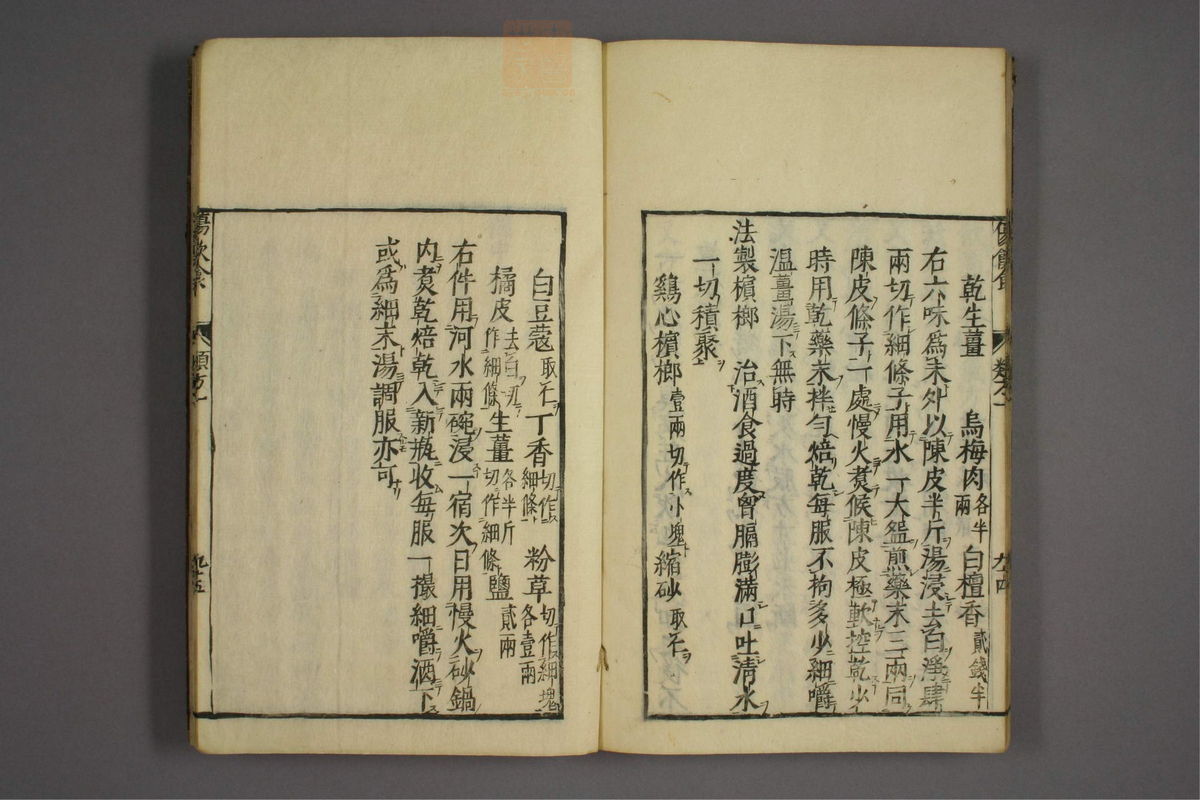 乾生薑　烏梅肉各半兩　白檀香貳錢半
右六味爲末外以陳皮半斤湯浸去白淨肆
兩切作細條子用水一大盌煎藥末三兩同
陳皮條子一處慢火煑候陳皮極軟控乾少
時用乾藥末拌勻焙乾每服不拘多少細嚼
溫薑湯下無時
法製檳榔　治酒食過度胷膈膨滿口吐清水
一切積聚
鷄心檳榔壹兩切作小塊縮砂取仁
白豆蔻取仁丁香切作細條粉草切作細塊各壹兩
橘皮去白切作細條生薑各半斤切作細條鹽貳兩
右件用河水兩碗浸一宿次日用慢火砂鍋
内煑乾焙乾入新瓶收每服一撮細嚼酒下
或爲細末湯調服亦可
九十五